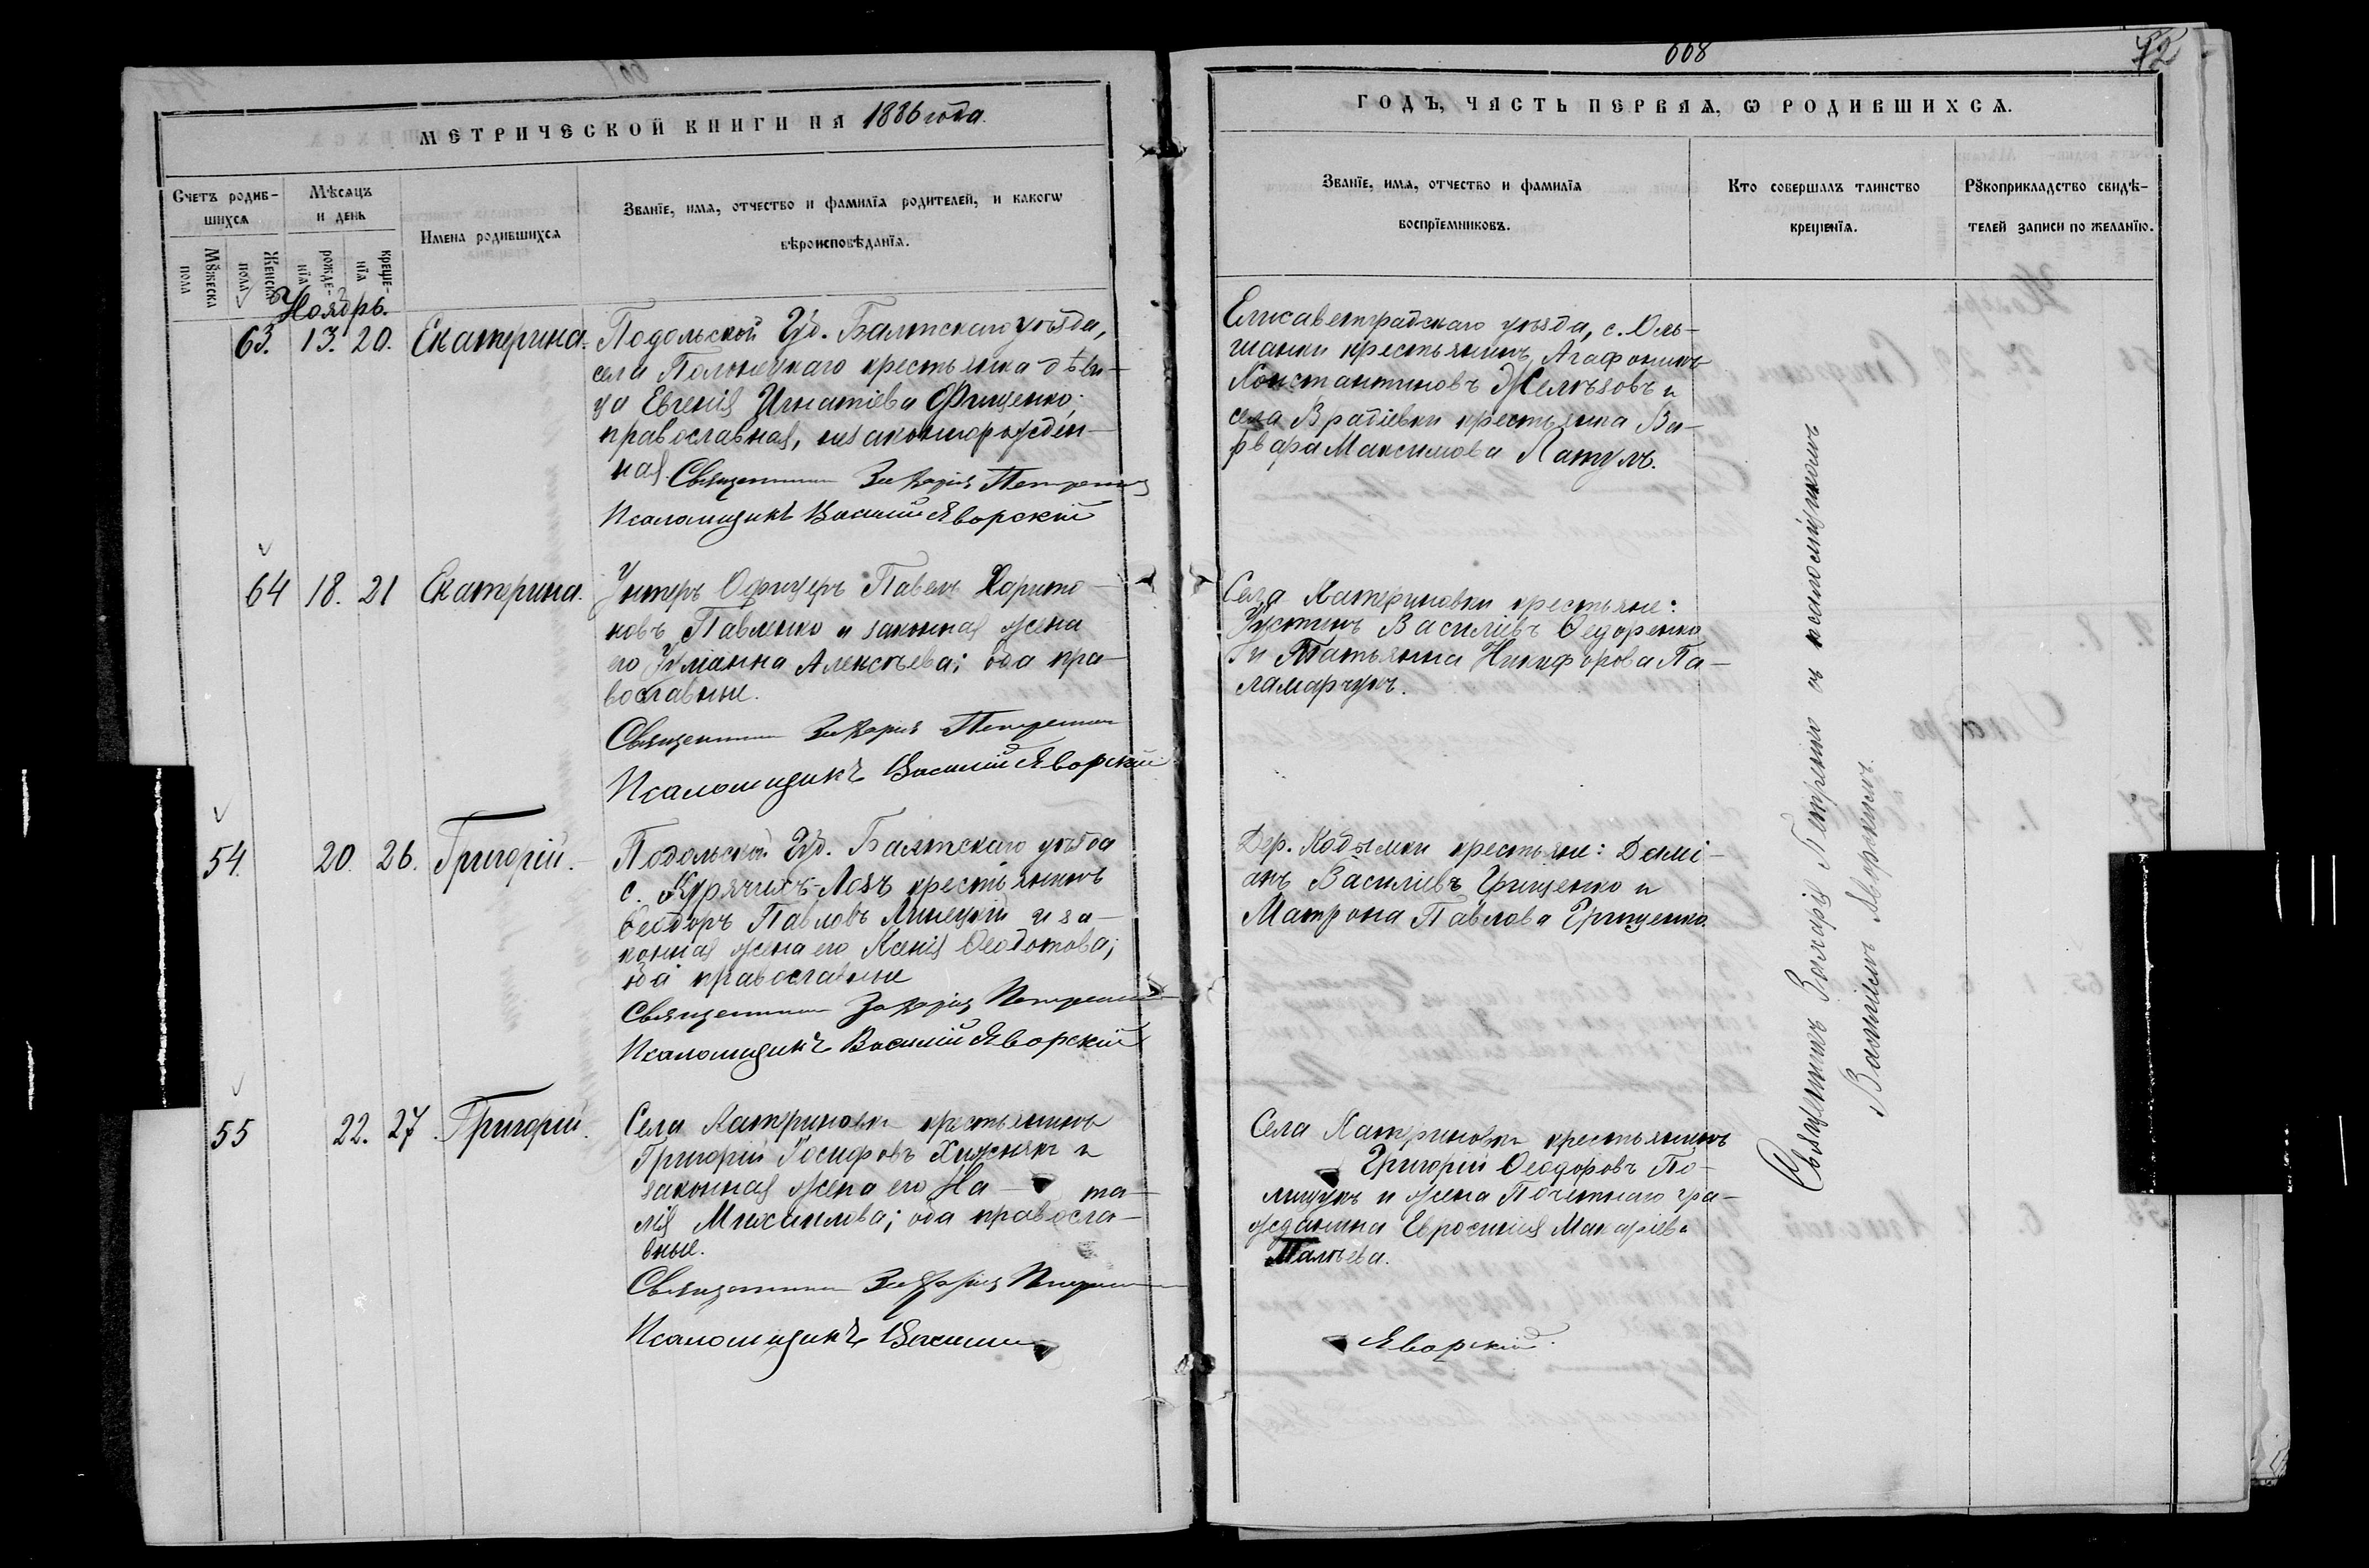 668
42
МЕТРИЧЕСКОЙ КНИГИ НА 1886 года.
ГОДЪ, ЧАСТЬ ПЕРВАЯ, Ѡ РОДИВШИХСѦ.
Счетъ родив-
шихсѧ
Мѣсѧцъ
и день
Имена родившихсѧ
Званїе, имѧ, отчество и фамилїѧ родителей, и какогѡ
вѣроисповѣданїѧ.
Мꙋжеска
пола
Женска
пола
рожде-
нїѧ
креще-
нїѧ
Званїе, имѧ, отчество и фамилїѧ
воспрїемниковъ.
Кто совершалъ таинство
крещенїѧ.
Рꙋкоприкладство свидѣ-
телей записи по желанїю.
Ноябрь.
63. 13. 20. Екатерина.
Подольской Губ. Балтскаго уѣзда,
села Полонецкаго крестьянка дѣви-
ца Евгенія Игнатіева Фищенко;
православная, незаконнорожден-
ная.
Священникъ Захарія Петренко
Псаломщикъ Василій Яворскій
Елисаветградскаго уѣзда, с. Оль-
шанки крестьянинъ Агафоникъ
Константиновъ Желѣзовъ и
села Врадіевки крестьянка Ва-
рвара Максимова Латулъ.
64 18. 21 Екатерина.
Унтеръ Офицеръ Павелъ Харито-
новъ Павленко и законная жена
его Іуліанна Алексѣева; оба пра-
вославные.
Священникъ Захарія Петренко
Псаломщикъ Василій Яворскій
Села Катериновки крестьяне:
Іустинъ Василіевъ Ѳедоренко
и Татьянна Никифорова Па-
ламарчукъ.
54. 20. 26. Григорій.
Подольской Губ. Балтскаго уѣзда
с. Курячихъ-Лозъ крестьянинъ
Ѳеодоръ Павловъ Липецкій и за-
конная жена его Ксенія Ѳеодотова;
оба православные
Священникъ Захарія Петренко
Псаломщикъ Василій Яворскій
Дер. Кодымки крестьяне: Дамі-
анъ Василіевъ Грищенко и
Матрона Павлова Грищенко.
55 22. 27. Григорій.
Села Катериновки крестьянинъ
Григорій Іосифовъ Хижнякъ и
законная жена его На- та-
лія Михаилова; оба правосла-
вные.
Священникъ Захарія Петренко
Псаломщикъ Василій
Села Катериновки крестьянинъ
Григорій Ѳеодоровъ По-
лищукъ и жена Почетнаго гра-
жданина Евросинія Макаріева
Яворскій.
Священникъ Захарія Петренко съ псаломщикомъ
Василіемъ Яворскимъ.